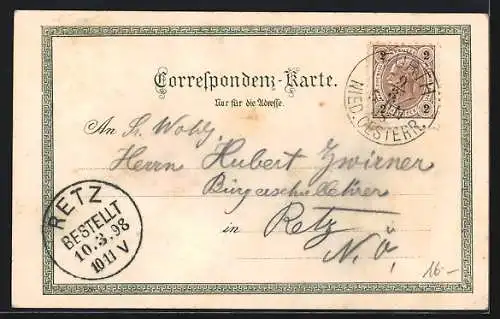 Correspondenz-Karte.
Nur für die Adresse.
2 2
2 2
NIED. OESTERR.
An Sr. Wohlg.
Herrn Hubert Zwirner
Bürgerschullehrer
in Retz
N. Ö.
RETZ
BESTELLT
10.3.98
10-11 V
16.-